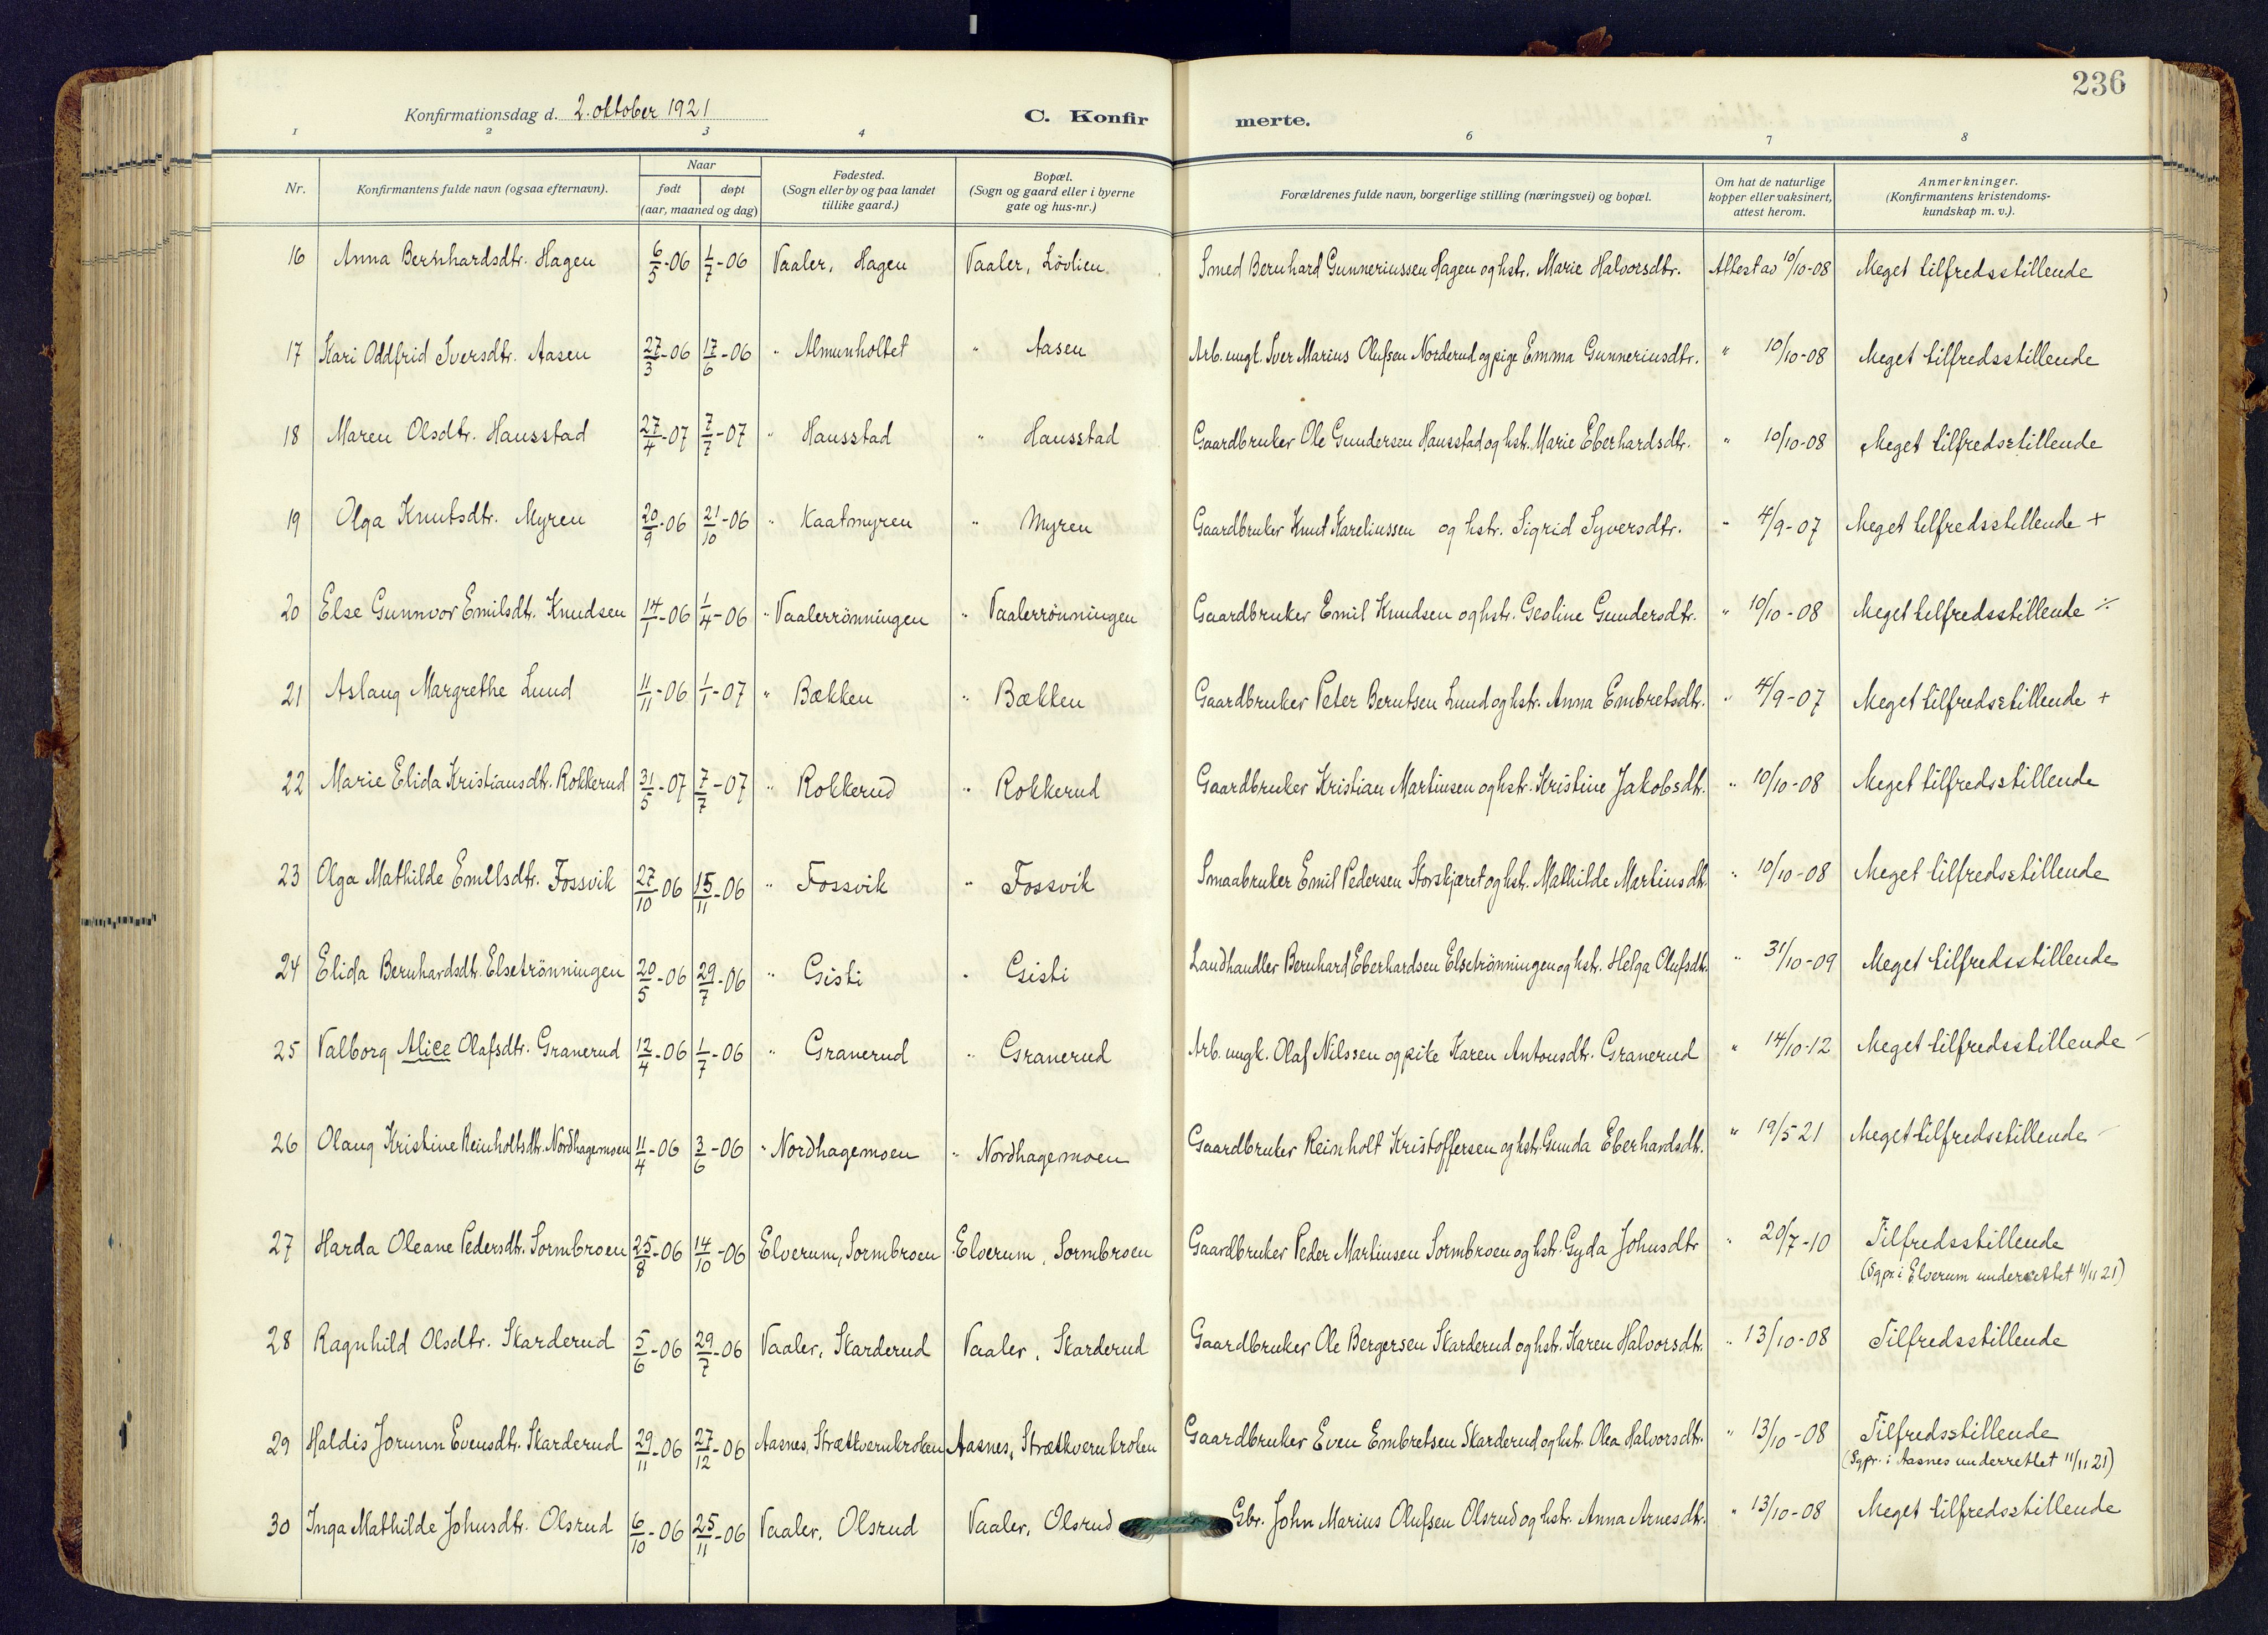 236
Konfirmationsdag d. 2. oktober 1921
C. Konfirmerte.
1 2 3 4 6 7 8
Nr.
Konfirmantens fulde navn (ogsaa efternavn).
Naar
født døpt
(aar, maaned og dag)
Fødested.
(Sogn eller by og paa landet
tillike gaard.)
Bopæl.
(Sogn og gaard eller i byerne
gate og hus-nr.)
Forældrenes fulde navn, borgerlige stilling (næringsvei) og bopæl.
Om hat de naturlige
kopper eller vaksinert,
attest herom.
Anmerkninger.
(Konfirmantens kristendoms-
kundskap m. v.).
16 Anna Bernhardsdtr. Hagen 6/5-06 1/7-06 Vaaler, Hagen Vaaler, Lövlien. Smed Bernhard Gunneriussen Hagen og hstr. Marie Halvorsdtr. Attest av 10/10-08 Meget tilfredsstillende
17 Kari Oddfrid Iversdtr. Aasen 27/3-06 17/6-06 " Almunholtet " Aasen Arb. ungk. Iver Marius Olufsen Norderud og pige Emma Gunneriusdtr. " 10/10-08 Meget tilfredsstillende
18 Maren Olsdtr. Hausstad 27/4-07 7/7-07 " Hausstad " Hausstad Gaardbruker Ole Gundersen Hausstad og hstr. Marie Eberhardsdtr. " 10/10-08 Meget tilfredsstillende
19 Olga Knutsdtr. Myren 20/9-06 21/10-06 " Kaatmyren " Myren Gaardbruker Knut Kareliussen og hstr. Sigrid Syversdtr. " 4/9-07 Meget tilfredsstillende +
20 Else Gunnvor Emilsdtr. Knudsen 14/1-06 1/4-06 " Vaalerrönningen " Vaalerrönningen Gaardbruker Emil Knudsen og hstr. Geoline Gundersdtr. " 10/10-08 Meget tilfredsstillende ÷
21 Aslaug Margrethe Lund 11/11-06 1/1-07 " Bækken " Bækken Gaardbruker Peter Berntsen Lund og hstr. Anna Embretsdtr. " 4/9-07 Meget tilfredsstillende +
22 Marie Elida Kristiansdtr. Rokkerud 31/5-07 7/7-07 " Rokkerud " Rokkerud Gaardbruker Kristian Martinsen og hstr. Kristine Jakobsdtr. " 10/10-08 Meget tilfredsstillende
23 Olga Mathilde Emilsdtr. Fossvik 27/10-06 15/11-06 " Fossvik " Fossvik Smaabruker Emil Pedersen Storskjæret og hstr. Mathilde Martinsdtr. " 10/10-08 Meget tilfredsstillende
24 Elida Bernhardsdtr. Elsetrönningen 20/5-06 29/7-06 " Gisti " Gisti Landhandler Bernhard Eberhardsen Elsetrönningen og hstr. Helga Olufsdtr. " 31/10-09 Meget tilfredsstillende
25 Valborg Alice Olafsdtr. Granerud 12/4-06 1/7-06 " Granerud " Granerud Arb. ungk. Olaf Nilssen og pike Karen Antonsdtr. Granerud " 14/10-12 Meget tilfredsstillende -
26 Olaug Kristine Reinholtsdtr. Nordhagemoen 11/4-06 3/6-06 " Nordhagemoen " Nordhagemoen Gaardbruker Reinholt Kristoffersen og hstr. Gunda Eberhardsdtr. " 19/5 21 Meget tilfredsstillende -
27 Harda Oleane Pedersdtr. Sormbroen 25/8-06 14/10-06 Elverum, Sormbroen Elverum, Sormbroen Gaardbruker Peder Martinsen Sormbroen og hstr. Gyda Johnsdtr " 29/7-10 Tilfredsstillende
(Sgpr. i Elverum underrettet 11/11 21)
28 Ragnhild Olsdtr. Skarderud 5/6-06 29/7-06 Vaaler, Skarderud Vaaler, Skarderud Gaardbruker Ole Bergersen Skarderud og hstr. Karen Halvorsdtr. " 13/10-08 Tilfredsstillende
29 Haldis Jorunn Evensdtr. Skarderud 29/11-06 27/12-06 Aasnes, Strætkvernkroken Aasnes, Strætkvernkroken Gaardbruker Even Embretsen Skarderud og hstr. Olea Halvorsdtr. " 13/10-08 Tilfredsstillende
(Sgpr. i Aasnes underrettet 11/11 21)
30 Inga Mathilde Johnsdtr. Olsrud 6/10-06 25/11-06 Vaaler, Olsrud Vaaler, Olsrud Gbr. John Marius Olufsen Olsrud og hstr. Anna Arnesdtr. " 13/10-08 Meget tilfredsstillende